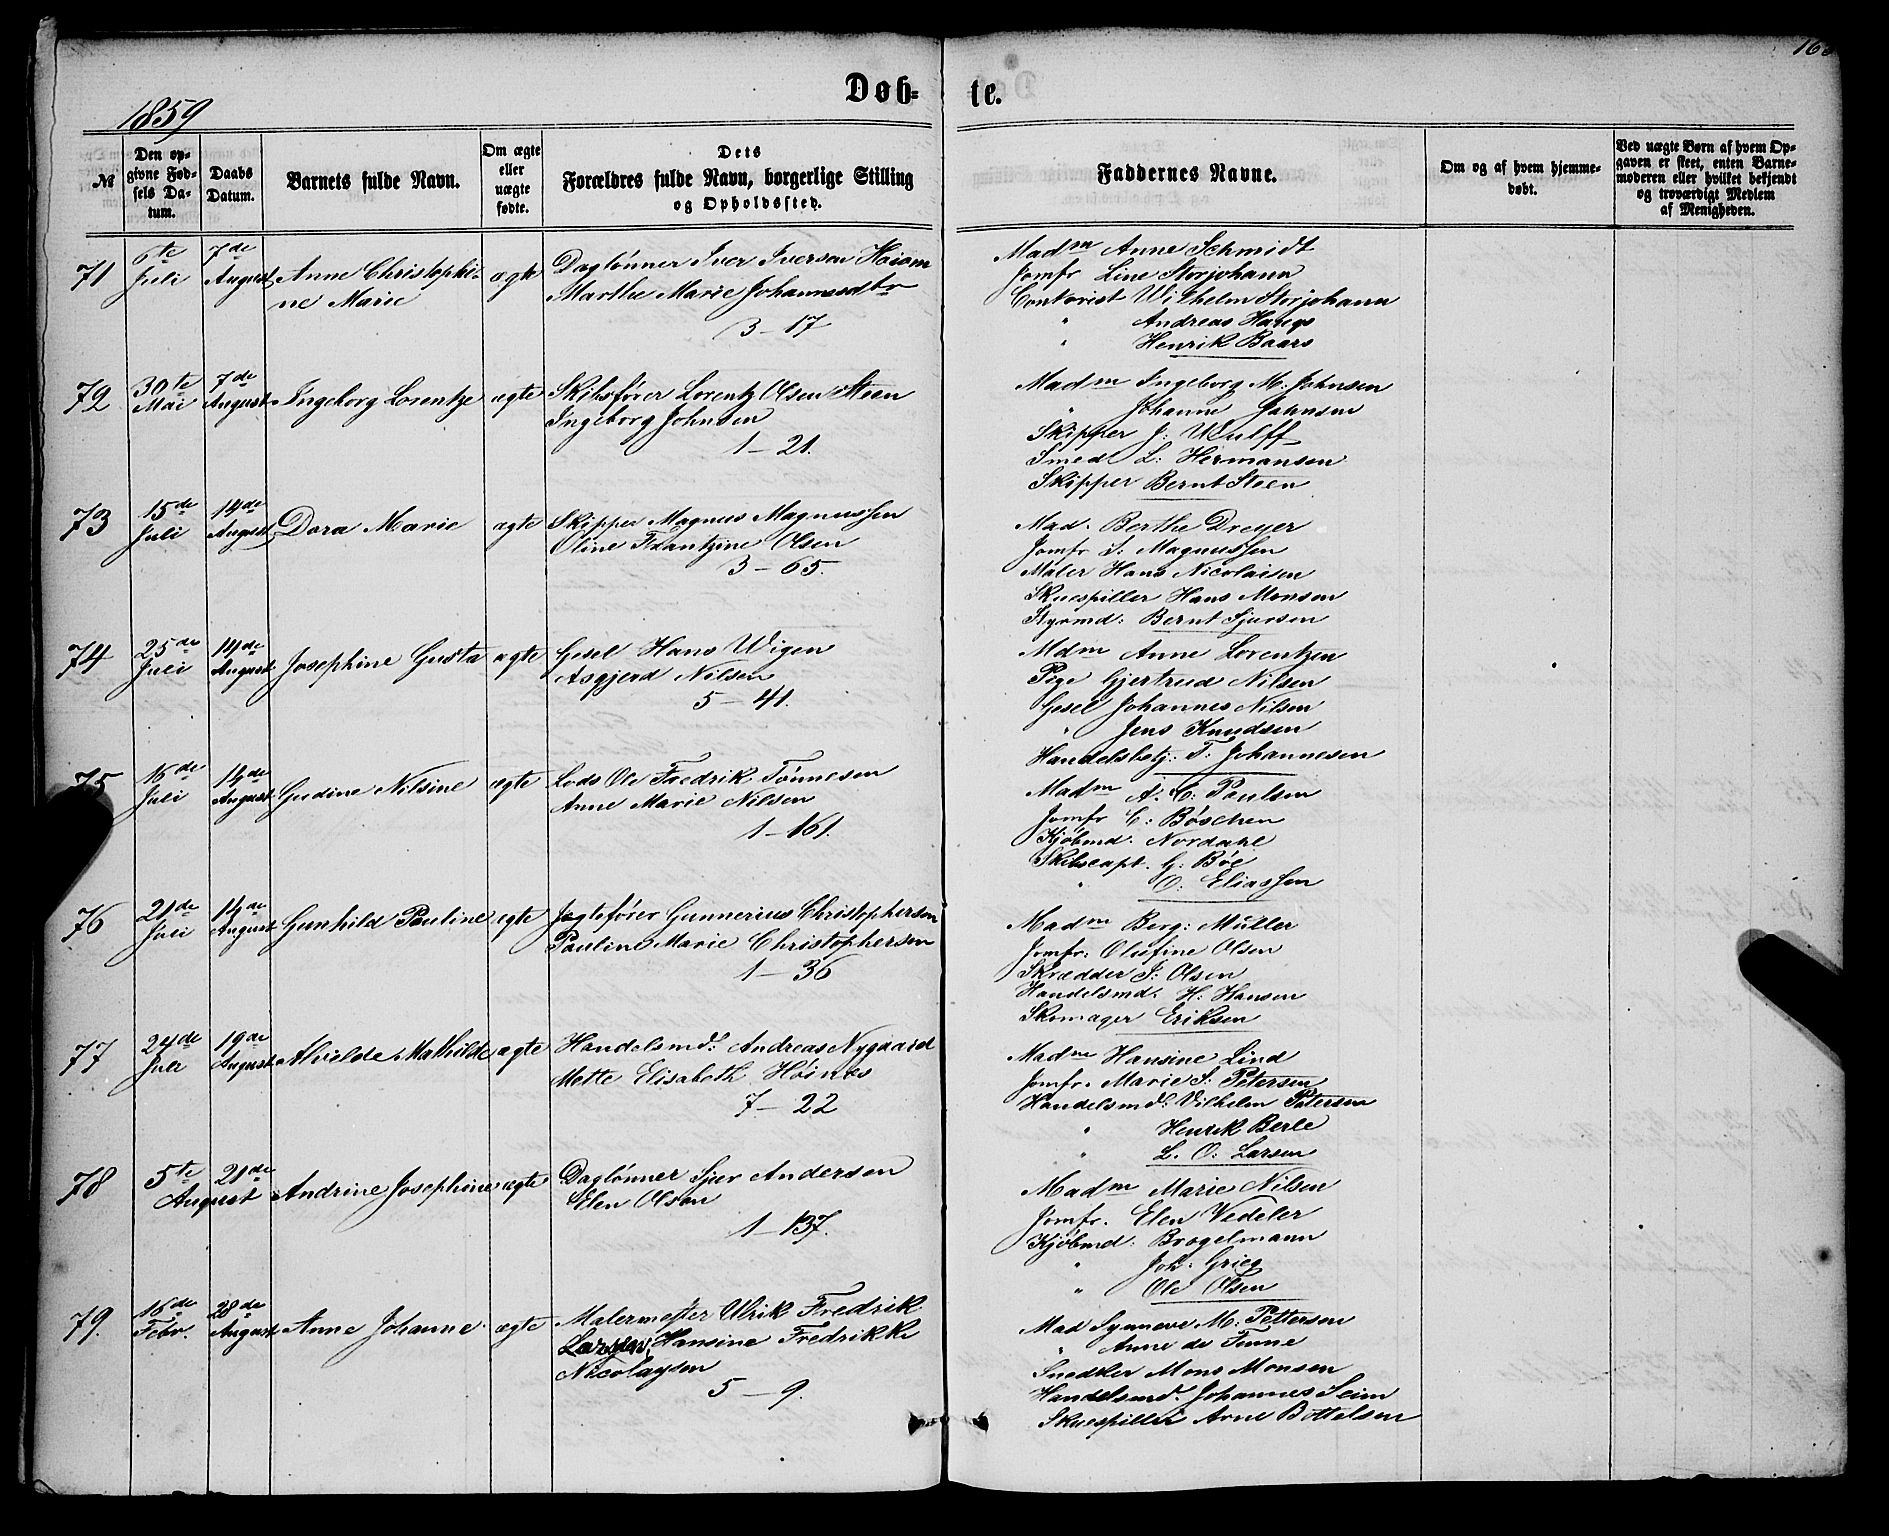 1859
Døb-
te.
№
Den op-
givne Fød-
sels Da-
tum.
Daabs
Datum.
Barnets fulde Navn.
Om ægte
eller
uægte
fødte.
Dets
Forældres fulde Navn, borgerlige Stilling
og Opholdssted.
Faddernes Navne.
Om og af hvem hjemme-
døbt.
Ved uægte Børn af hvem Op-
gaven er skeet, enten Barne-
moderen eller hvilket bekjendt
og troværdigt Medlem
af Menigheden.
71
6te
Juli
7de
August
Anne Christophi-
ne Marie
ægte
Daglønner Iver Iversen
Marthe Marie Johannesdtr
3-17
Madm Anne Schmidt
Jomfr Line Storjohann
Contorist Wilhelm Storjohann
" Andreas
" Henrik Baars
72
30te
Mai
7de
August
Ingeborg Lorentze
ægte
Skibsfører Lorentz Olsen Steen
Ingeborg Johnsen
1-21.
Madm Ingeborg M. Johnsen
" Johanne Johnsen
Skipper J: Wulff
Smed L: Hermansen
Skipper Bernt Steen
73
15de
Juli
14de
August
Dora Marie
ægte
Skipper Magnus Magnussen
Oline Frantzine Olsen
3-65.
Mad. Berthe Dreyer
Jomfr S. Magnussen
Maler Hans Nicolaisen
Skuespiller Hans Monsen
Styrmd: Bernt Sjursen
74
25de
Juli
14de
August
Josephine Gusta
ægte
Gesel Hans Wigen
Asgjerd Nilsen
5-41.
Mdm Anne Lorentzen
Pige Gjertrud Nilsen
Gesel Johannes Nilsen
" Jens Knudsen
Handelsbetj: T. Johannesen
75
16de
Juli
14de
August
Gudine Nilsine
ægte
Lods Ole Fredrik Tønnesen
Anne Marie Nilsen
1-161.
Madm A. C: Paulsen
Jomfr C: Bøschen
Kjøbmd. Nordahl
Skibscapt. G. Bøe
" O: Eliassen
76
21de
Juli
14de
August
Gunhild Pauline
ægte
Jagtefører Gunnerius Christophersen
Pauline Marie Christophersen
1-36
Madm Berg: Müller
Jomfr: Olufine Olsen
Skrædder J: Olsen
Handelsmd. H. Hansen
Skomager Eriksen
77
24de
Juli
19de
August
Alvilde Mathilde
ægte
Handelsmd: Andreas Nygaard
Mette Elisabeth Høines
7-22
Madm Hansine Lind
Jomfr. Marie S. Petersen
Handelsmd: Vilhelm Petersen
" Henrik Berle
" L. O: Larsen
78
5te
21de
August
Andrine Josephine
ægte
Daglønner Sjur Andersen
Elen Olsen
1-137.
Madm Marie Nilsen
Jomfr. Elen Vedeler
Kjøbmd: Brøgelmann
" Joh. Grieg
" Ole Olsen
79.
16de
Febr.
28de
August
Anne Johanne
ægte
Malermester Ulrik Fredrik
Larsen, Hansine Fredrikke
Nicolaysen
5-9.
Mad Synneve M. Pettersen
" Anne de Finne
Snedker Mons Monsen
Handelsmd. Johannes Seim
Skuespiller Arne Bottelsen